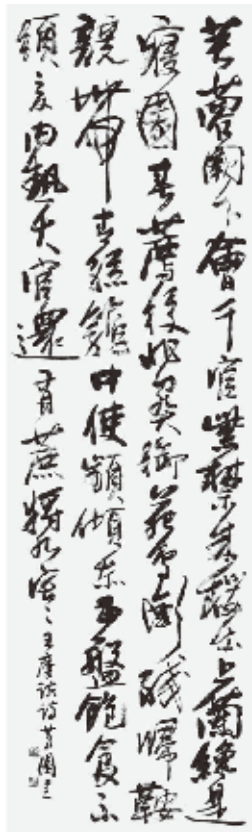 芙蓉闕下會千官紫禁朱櫻出上蘭纔是
寢園春薦後非關御苑鳥銜殘歸鞍
競帶青絲籠中使頻傾赤玉盤飽食不
須内熱大官還有蔗漿寒 王摩詰詩